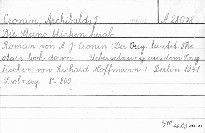 Cronin, Archibald J. A 28098
Die Sterne blicken herab
Roman von A J Cronin (Die Orig. lautet: The
stars look down Uebersetzung aus dem Eng
lischen von Richard Hoffmann) Berlin 1941
Zsolnay 8° 800